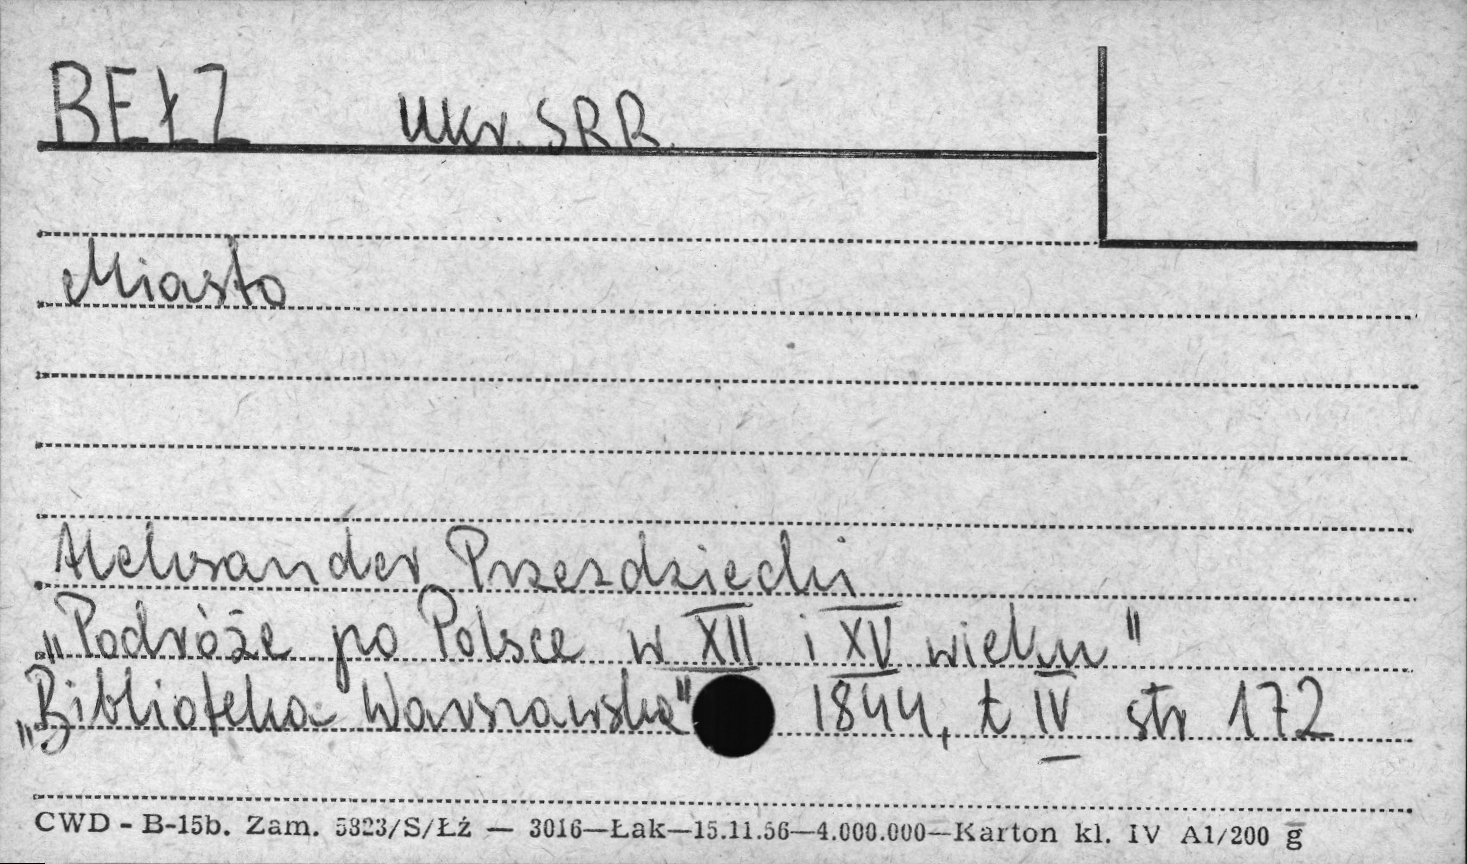 BEŁZ Ukr. SRR.
Miasto
Aleksander Przezdziecki
„Podróże po Polsce w XII i XV wieku"
„Biblioteka Warszawska" 1844, t IV str 172
CWD - B-15b. Zam. 5323/S/Łż — 3016—Łak—15.11.56—4.000.000—Karton kl. IV A1/200 g